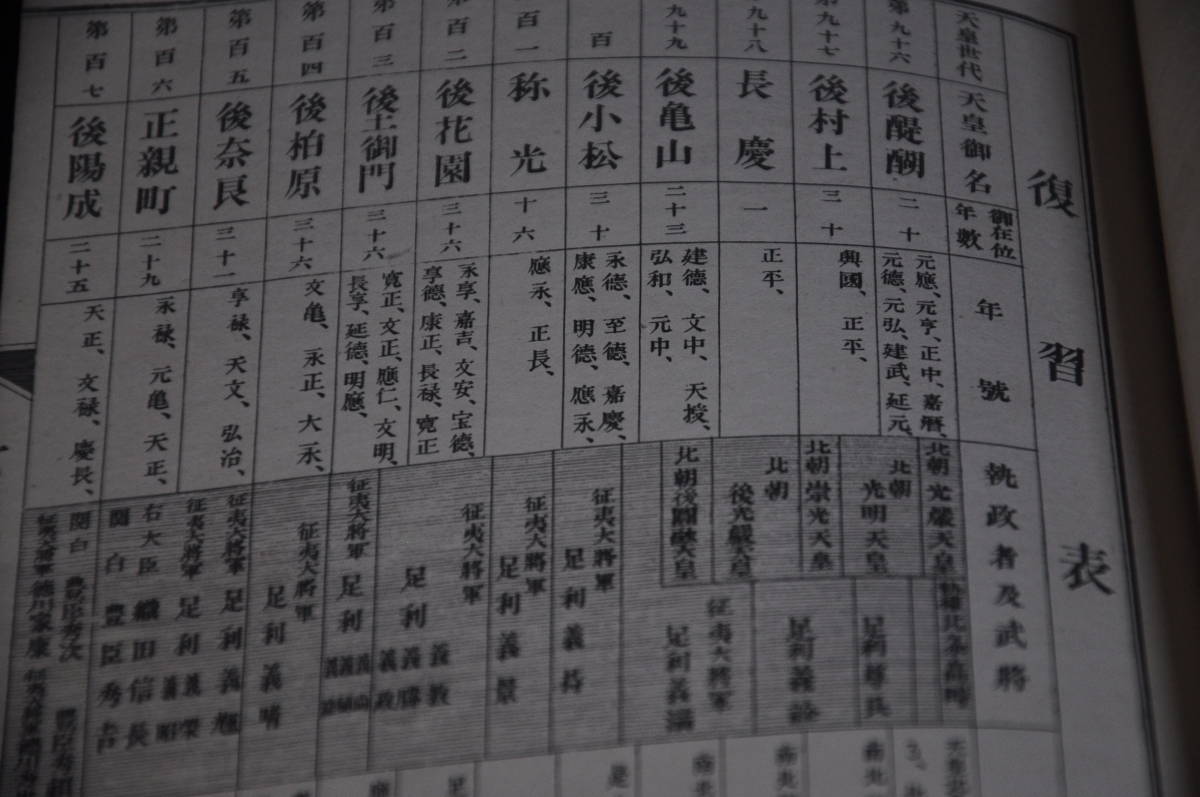 復習表
天皇世代
天皇御名
御在位
年數
年號
執政者及武將
第九十六
後醍醐
二十
元應、元亨、正中、嘉曆、
元德、元弘、建武、延元、
北朝光嚴天皇
第九十七
後村上
三十
興國、正平、
北朝
光明天皇
足利尊氏
九十八
長慶
一
正平、
北朝崇光天皇
北朝
後光嚴天皇
足利義詮
九十九
後亀山
二十三
建德、文中、天授、
弘和、元中、
北朝後圓融天皇
征夷大將軍
足利義滿
百
後小松
三十
永德、至德、嘉慶、
康應、明德、應永、
征夷大將軍
足利義持
百一
称光
十六
應永、正長、
征夷大將軍
足利義量
百二
後花園
三十六
永享、嘉吉、文安、宝德、
享德、康正、長禄、寛正
征夷大將軍
足利
義教
義勝
義政
第百三
後土御門
三十六
寛正、文正、應仁、文明、
長享、延德、明應、
征夷大將軍
足利
第百四
後柏原
三十六
文亀、永正、大永、
征夷大將軍
足利義晴
第百五
後奈良
三十一
享禄、天文、弘治、
征夷大將軍 足利義
征夷大將軍 足利
義榮
義昭
第百六
正親町
二十九
永禄、元亀、天正、
右大臣 織田信長
関白 豊臣秀吉
第百七
後陽成
二十五
天正、文禄、慶長、
関白 豊臣秀次
征夷大將軍 德川家康